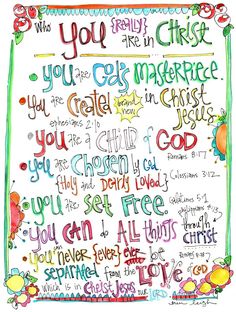 Who YOU {REALLY} are in CHRIST
YOU are GOD'S MASTERPIECE.
YOU are CREATED brand new in CHRIST JESUS
ephesians 2:10
YOU are a CHILD of GOD
Romans 8:17
YOU are CHOSEN by God
{Holy and Dearly Loved} Colossians 3:12
YOU are SET FREE.
Galatians 5:1
YOU CAN do ALL THINGS through CHRIST
philippians 4:13
YOU can NEVER {EVER} EVER be
SEPARATED from the LOVE of GOD
which is in Christ Jesus our LORD